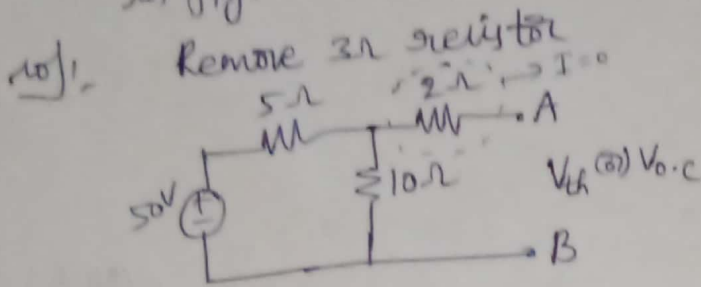 sol:-
Remove 3Ω resistor
5Ω
2Ω → I=0
A
50V
10Ω
Vth (or) Vo.c
B